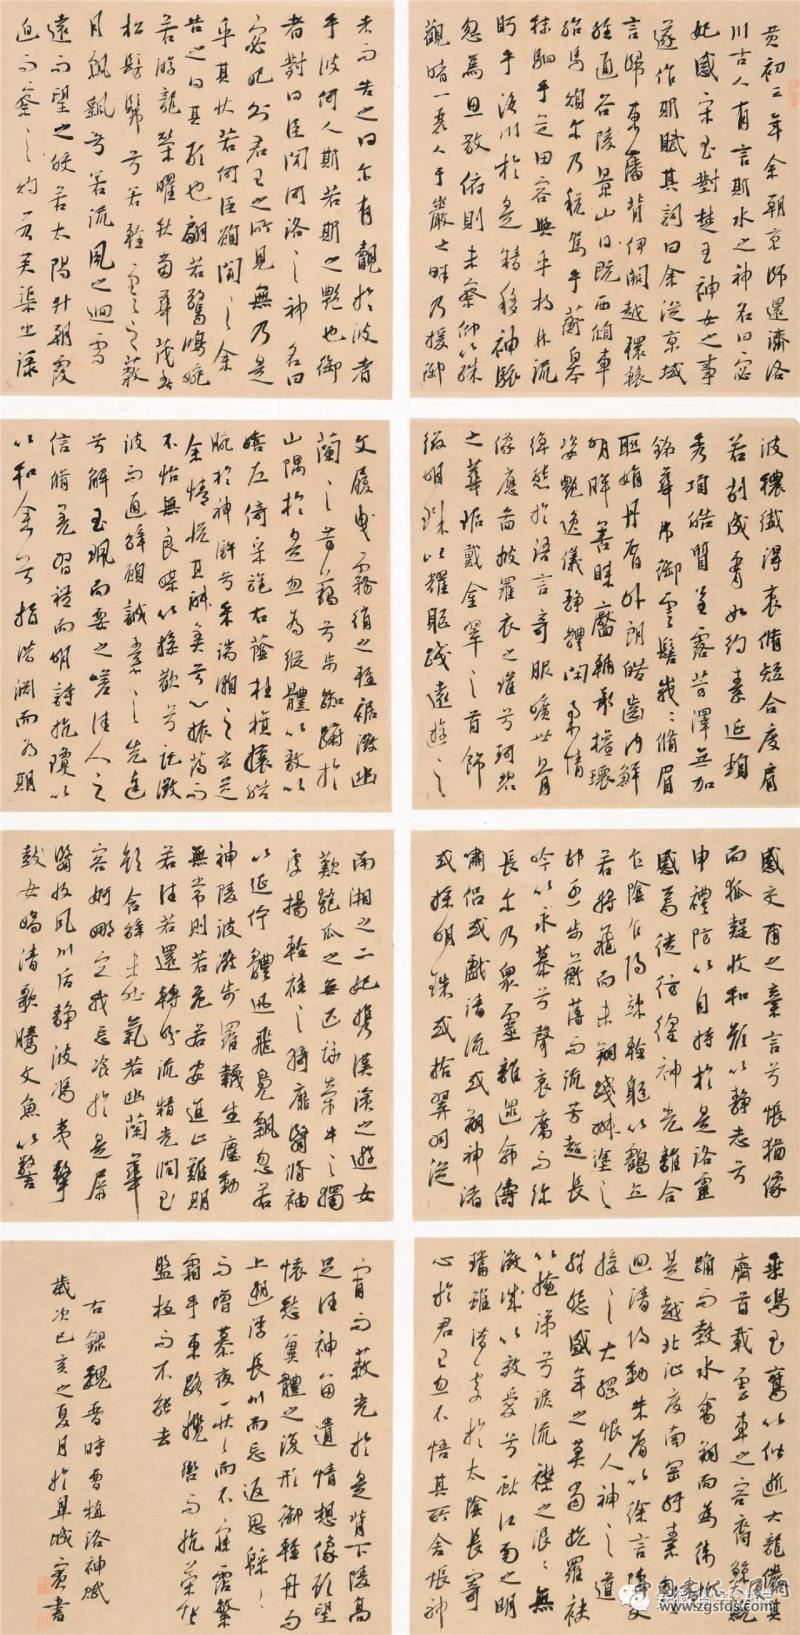 黄初三年余朝京師還濟洛
川古人有言斯水之神名曰宓
妃感宋玉對楚王神女之事
遂作斯賦其詞曰余從京域
言歸東藩背伊闕越轘轅
經通谷陵景山日既西傾車
殆馬煩爾乃稅駕乎蘅皋
秣駟乎芝田容與乎楊林流
眄乎洛川於是精移神駭
忽焉思散俯則未察仰以殊
觀睹一麗人于巖之畔乃援御
者而告之曰爾有覿於彼者
乎彼何人斯若斯之艷也御
者對曰臣聞河洛之神名曰
宓妃則君王之所見無乃是
乎其狀若何臣願聞之余
告之曰其形也翩若驚鴻婉
若游龍榮曜秋菊華茂春
松髣髴兮若輕雲之蔽
月飄飖兮若流風之迴雪
遠而望之皎若太陽升朝霞
迫而察之灼若芙蕖出淥
波穠纖得衷脩短合度肩
若削成腰如約素延頸
秀項皓質呈露芳澤無加
鉛華弗御雲髻峨峨脩眉
聯娟丹唇外朗皓齒內鮮
明眸善睞靨輔承權瓌
姿艷逸儀靜體閑柔情
綽態於語言奇服曠世骨
像應圖披羅衣之璀兮珥碧
之華琚戴金翠之首飾
綴明珠以耀軀踐遠遊之
文履曳霧綃之輕裾微幽
蘭之芳藹兮步踟躕於
山隅於是忽焉縱體以敖以
嬉左倚采旄右蔭桂旗攘皓
腕於神滸兮采湍瀨之玄芝
余情悅其淑美兮心振蕩而
不怡無良媒以接歡兮託微
波而通辭願誠素之先達
兮解玉珮而要之嗟佳人之
信脩羌習禮而明詩抗瓊以
以和余兮指潛淵而為期
感交甫之棄言兮悵猶像
而狐疑收和顏以靜志兮
申禮防以自持於是洛靈
感焉徙彷徨神光離合
乍陰乍陽竦輕軀以鶴立
若將飛而未翔踐椒塗之
郁步蘅薄而流芳超長
吟以永慕兮聲哀厲而彌
長爾乃眾靈雜遝命儔
嘯侶或戲清流或翔神渚
或採明珠或拾翠羽從
南湘之二妃攜漢濱之遊女
歎匏瓜之無匹詠牽牛之獨
處揚輕袿之猗靡翳脩袖
以延佇體迅飛鳧飄忽若
神陵波微步羅襪生塵動
無常則若危若安進止難期
若往若還轉眄流精光潤玉
顏含辭未吐氣若幽蘭華
容婀娜令我忘飡於是屏
翳收風川后靜波馮夷擊
鼓女媧清歌騰文魚以警
乘鳴玉鸞以偕逝六龍儼其
齊首載雲車之容裔鯨鯢
踊而轂水禽翔而為衛於
是越北沚度南岡紆素領
迴清陽動朱唇以徐言陳交
接之大綱恨人神之道
殊怨盛年之莫當抗羅袂
以掩涕兮淚流襟之浪浪無
微情以效愛兮獻江南之明
璫雖潛處於太陰長寄
心於君王忽不悟其所舍悵神
宵而蔽光於是背下陵高
足往神留遺情想像顧望
懷愁冀體之復形御輕舟而
上遡浮長川而忘返思緜緜
而增慕夜耿耿而不寐霑繁
霜乎東路攬轡而抗策悵
盤桓而不能去
右錄魏晉時曹植洛神賦
歲次己亥之夏月於阜城書
www.zgsfds.com